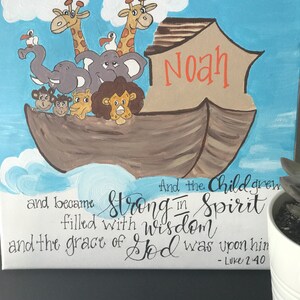 Noah
And the Child grew
and became Strong in Spirit
filled with wisdom
and the grace of God was upon him
- Luke 2:40